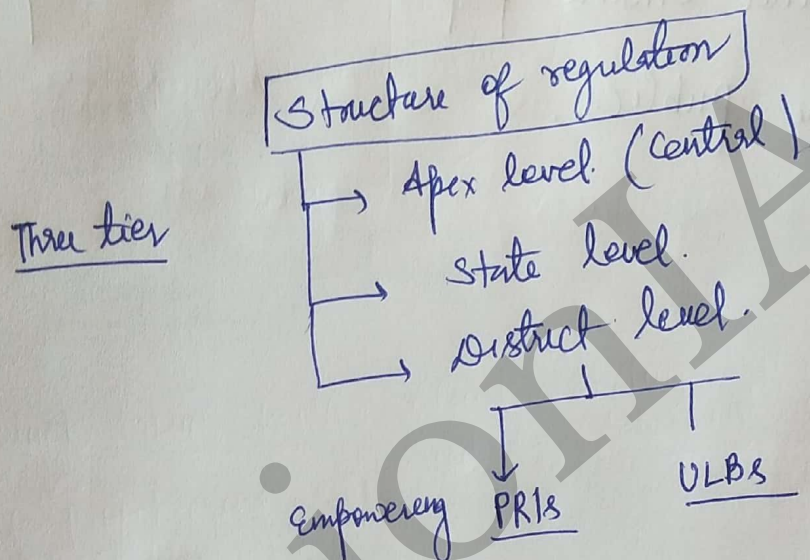 Structure of regulation
Apex level (Central)
Three tier
State level.
District level.
Empowering PRIs
ULBs
ionIA